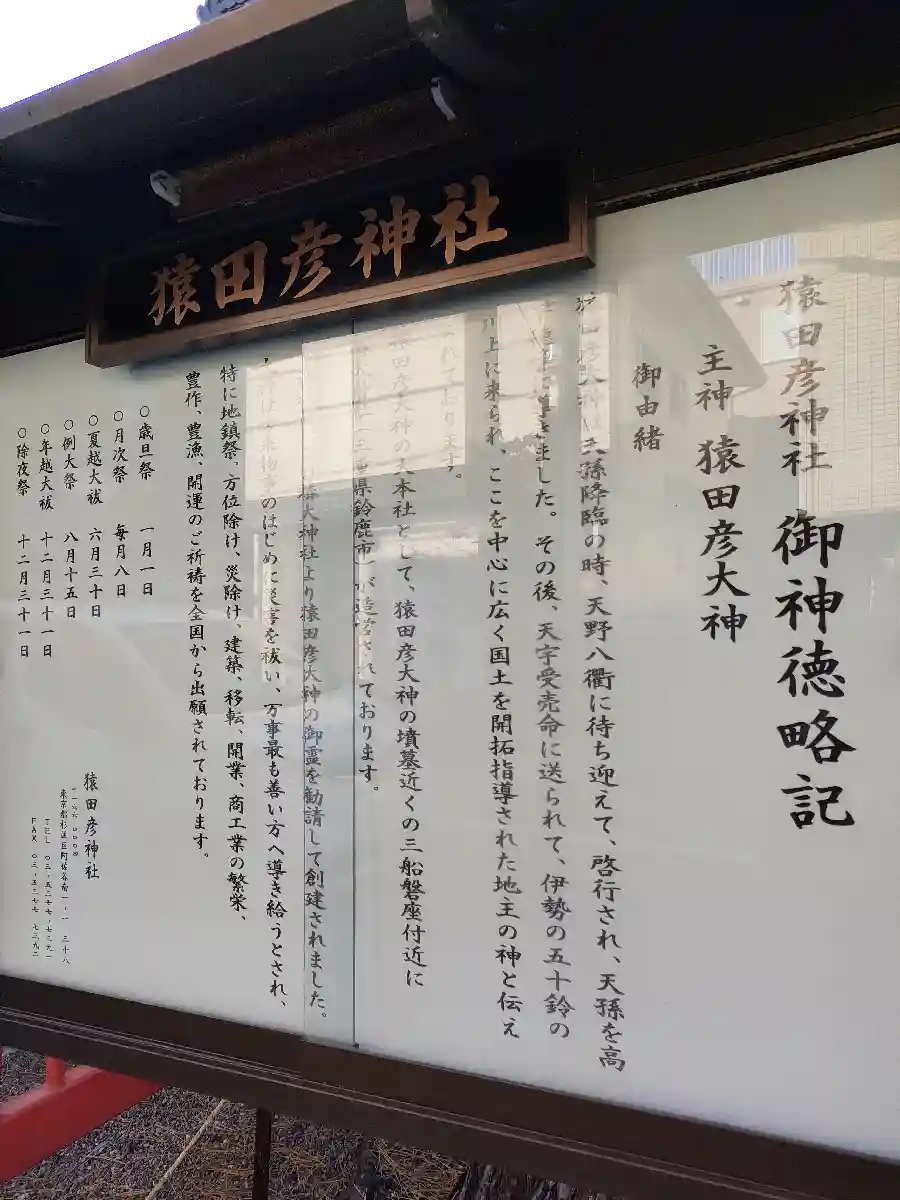 猿田彦神社
猿田彦神社 御神徳略記
主神 猿田彦大神
御由緒
は天孫降臨の時、天野八衢に待ち迎えて、啓行され、天孫を高
ました。その後、天宇受売命に送られて、伊勢の五十鈴の
川上に来られ、ここを中心に広く国土を開拓指導された地主の神と伝え
れております。
田彦大神の大本社として、猿田彦大神の墳墓近くの三船磐座付近に
県鈴鹿市)が造営されております。
大神社より猿田彦大神の御霊を勧請して創建されました。
のはじめに災害を祓い、万事最も善い方へ導き給うとされ、
特に地鎮祭、方位除け、災除け、建築、移転、開業、商工業の繁栄、
豊作、豊漁、開運のご祈祷を全国から出願されております。
○歳旦祭 一月一日
○月次祭 毎月八日
○夏越大祓 六月三十日
○例大祭 八月十五日
○年越大祓 十二月三十一日
○除夜祭 十二月三十一日
猿田彦神社
東京都杉並区阿佐谷南一-一 三十八
TEL
FAX